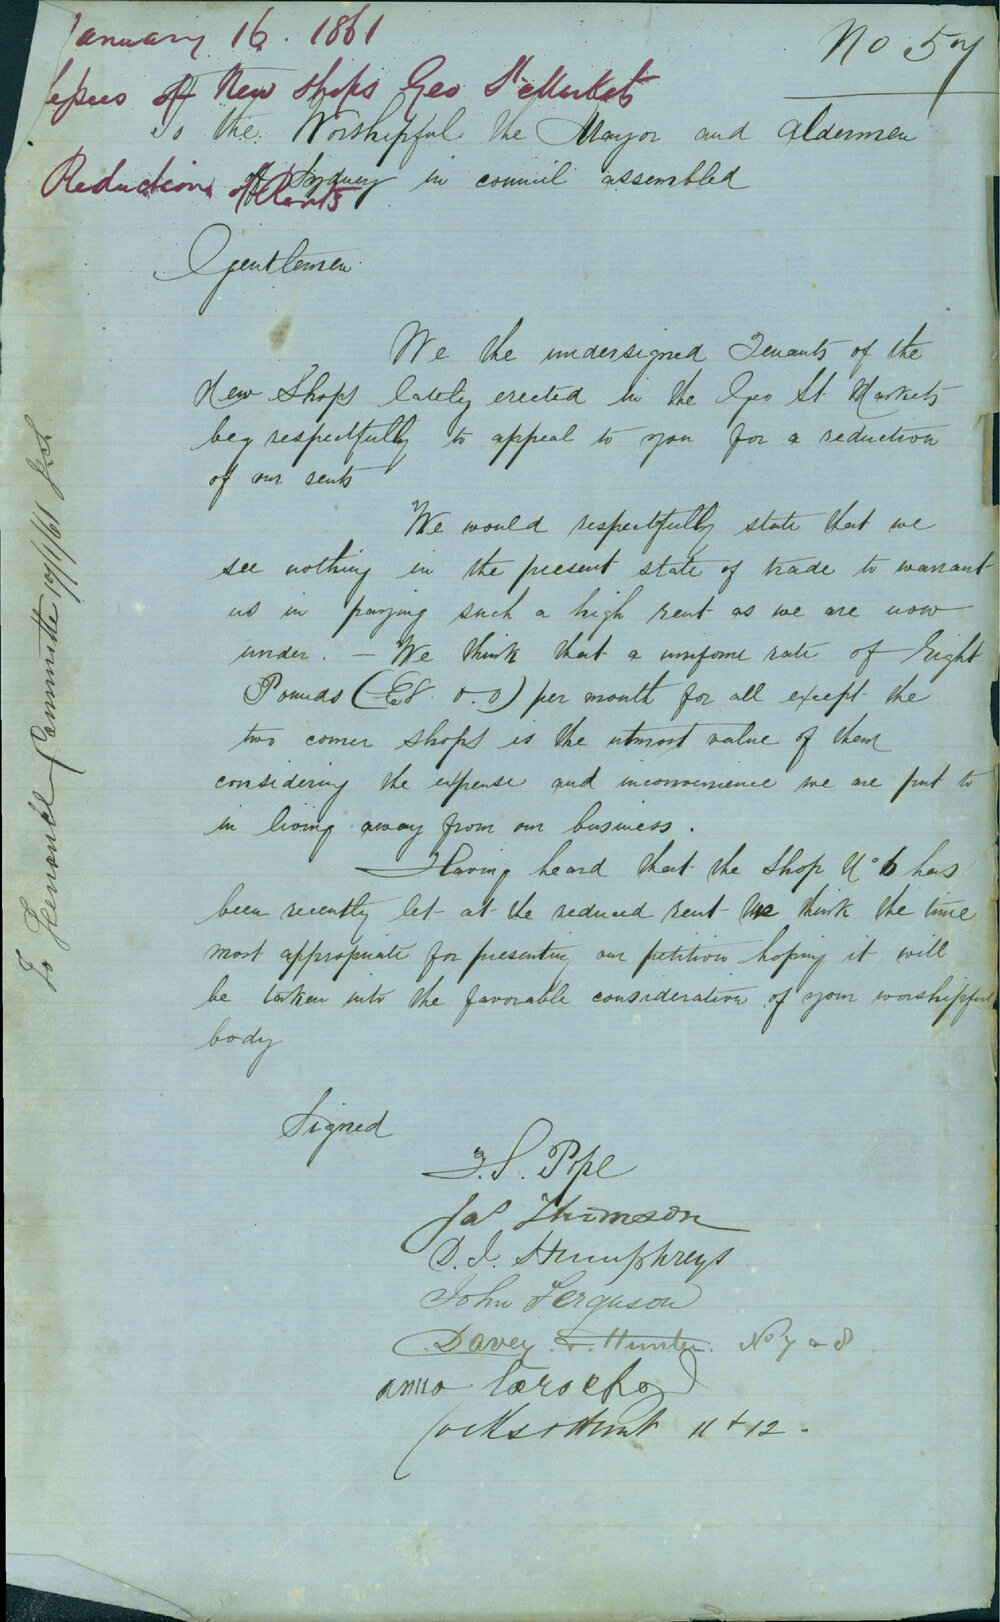 January 16. 1861
No 57
Lessees of New Shops Geo St Markets
To the Worshipful the Mayor and Aldermen
Reduction of Rents
of Sydney in council assembled
Gentlemen
We the undersigned Tenants of the
New Shops lately erected in the Geo St Markets
beg respectfully to appeal to you for a reduction
of our rents
We would respectfully state that we
see nothing in the present state of trade to warrant
us in paying such a high rent as we are now
under. – We think that a uniform rate of Eight
Pounds (£8. 0. 0) per month for all except the
two corner shops is the utmost value of them
considering the expense and inconvenience we are put to
in living away from our business.
Having heard that the Shop No 6 has
been recently let at the reduced rent we think the time
most appropriate for presenting our petition hoping it will
be taken into the favorable consideration of your worshipful
body
Signed
T. S. Pope
Jas Thomson
D. J. Humphreys
John Ferguson
Davey & Hunter. No 7 & 8
Cocks & Hunt 11 + 12.
To General Committee 17/1/61